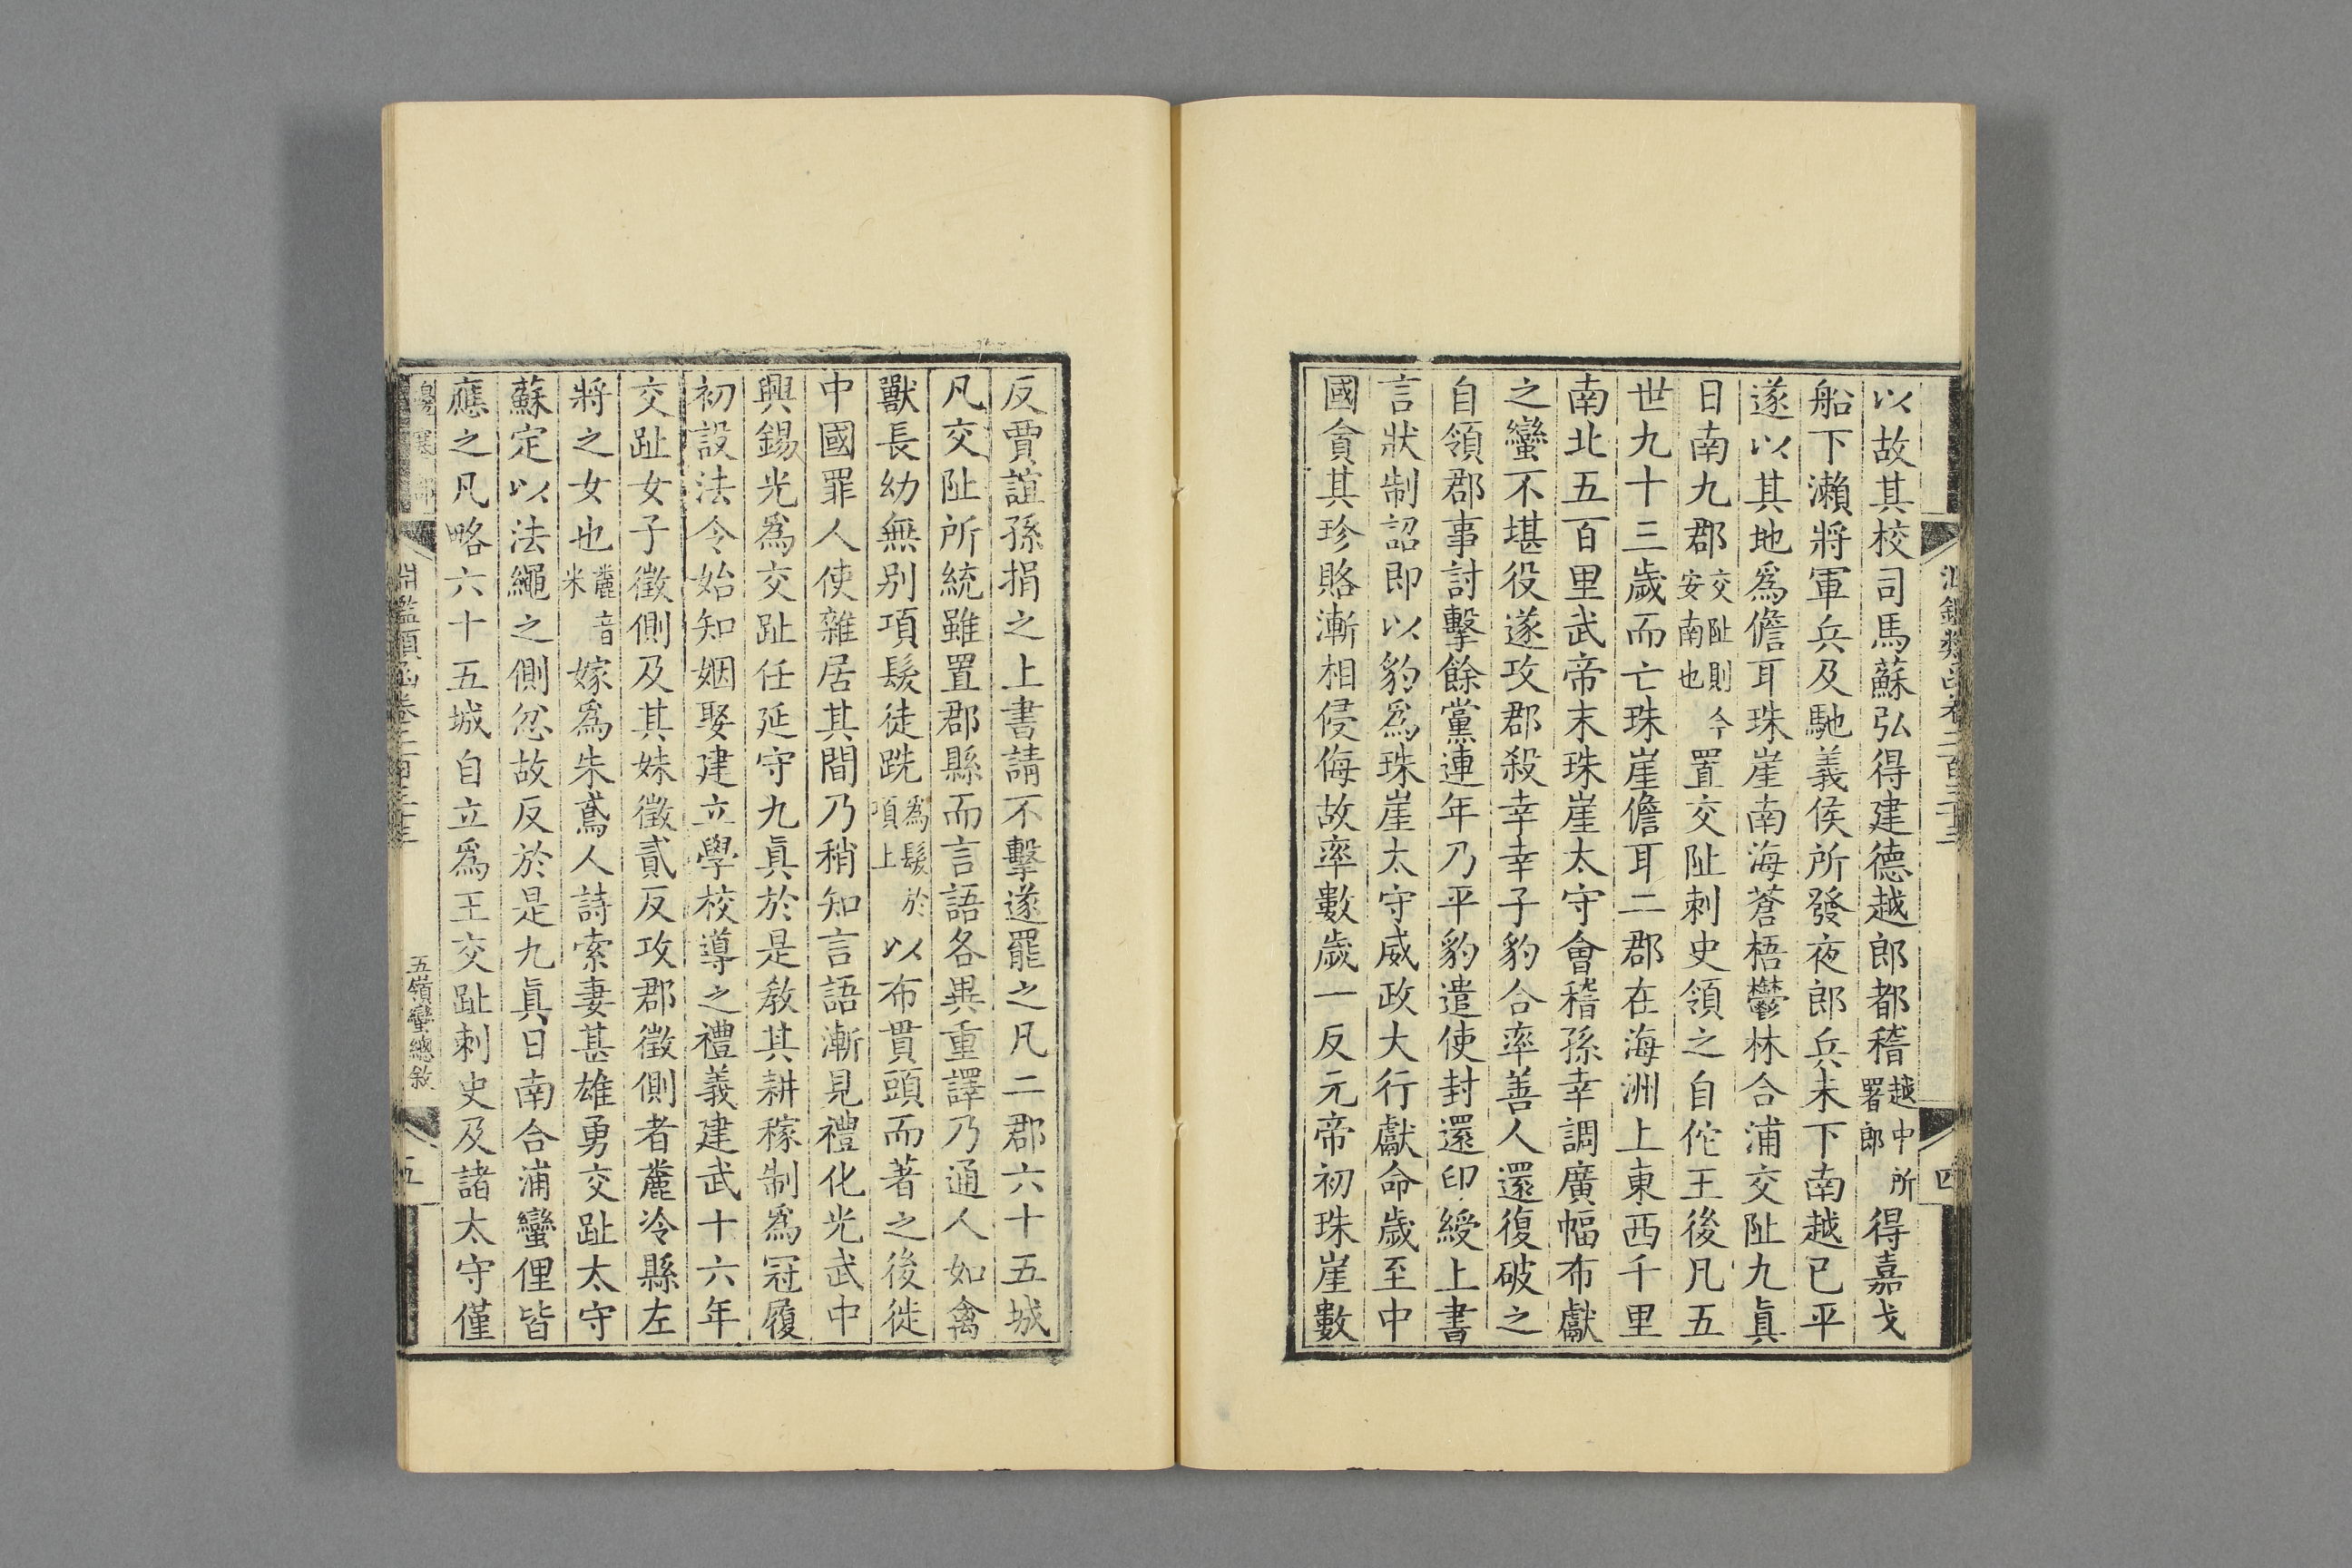 以故其校司馬蘇弘得建德越郎都稽越中所署郎得嘉戈
船下瀨將軍兵及馳義侯所發夜郎兵未下南越已平
遂以其地爲儋耳珠崖南海蒼梧鬱林合浦交阯九眞
日南九郡交阯則今安南也置交阯刺史領之自佗王後凡五
世九十三歲而亡珠崖儋耳二郡在海洲上東西千里
南北五百里武帝末珠崖太守會稽孫幸調廣幅布獻
之蠻不堪役遂攻郡殺幸幸子豹合率善人還復破之
自領郡事討擊餘黨連年乃平豹遣使封還印綬上書
言狀制詔即以豹爲珠崖太守威政大行獻命歲至中
國貪其珍賂漸相侵侮故率數歲一反元帝初珠崖數
四
反賈誼孫捐之上書請不擊遂罷之凡二郡六十五城
凡交阯所統雖置郡縣而言語各異重譯乃通人如禽
獸長幼無别項髮徒跣爲髮於項上以布貫頭而著之後徙
中國罪人使雜居其間乃稍知言語漸見禮化光武中
興錫光爲交趾任延守九眞於是敎其耕稼制爲冠履
初設法令始知姻娶建立學校導之禮義建武十六年
交趾女子徵側及其妹徵貳反攻郡徵側者麊泠縣左
將之女也麊音米嫁爲朱鳶人詩索妻甚雄勇交趾太守
蘇定以法繩之側忿故反於是九眞日南合浦蠻俚皆
應之凡略六十五城自立爲王交趾刺史及諸太守僅
五嶺蠻總敘
五